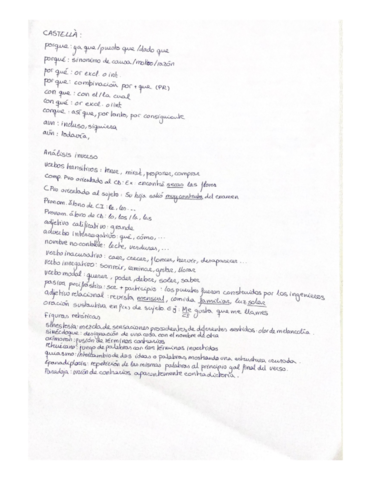 CASTELLÀ:
porque: ya que/puesto que/dado que
porqué: sinonimo de causa/motivo/razón
por qué: or excl o int
por que: combinación por + que (PR)
con que: con el/la cual
con qué: or excl o int
conque: así que, por tanto, por consiguiente
aun: incluso, siquiera
aún: todavía,
Análisis inverso
verbos transitivos: tener, mirar, proponer, comprar
C.Pvo orientado al sujeto: Su hija está del examen
Pronom. átono de CI: le, les ...
Pronom. átono de CD: lo, los/la, las
adjetivo calificativo: grande
adverbio interrogativo: qué, cómo, ...
nombre no contable: leche, verduras, ...
verbo inacusativo: caer, crecer, florecer, desaparecer ...
verbo inergativo: sonreír, caminar, gritar, llorar
verbo modal: querer, poder, deber, soler, saber
pasiva perifrástica: ser + participio: los puentes fueron construidos por los ingenieros
adjetivo relacional: revista semanal, comida familiar, luz solar
oración sustantiva en func de sujeto: Me gusta que me llames
CI
Figuras retóricas
sinestesia: mezcla de sensaciones procedentes de diferentes sentidos olor de melancolía
sinécdoque: designación de una cosa con el nombre de otra
oxímoron: fusión de términos contrarios
retruécano: juego de palabras con los términos invertidos
quiasmo: intercambio de dos ideas o palabras mostrando una estructura cruzada.
: repetición de las mismas palabras al principio y al final del verso.
Paradoja: unión de contrarios aparentemente contradictoria.